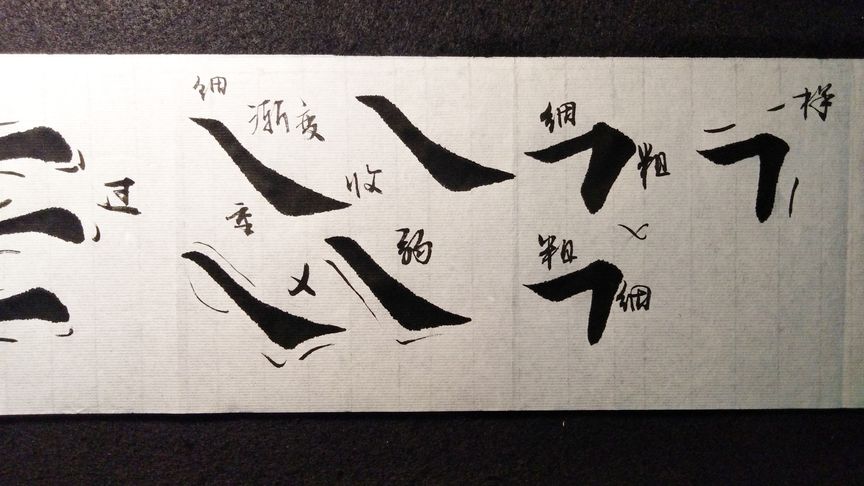 细
渐变
收
过
弱
细
粗
粗
细
一样